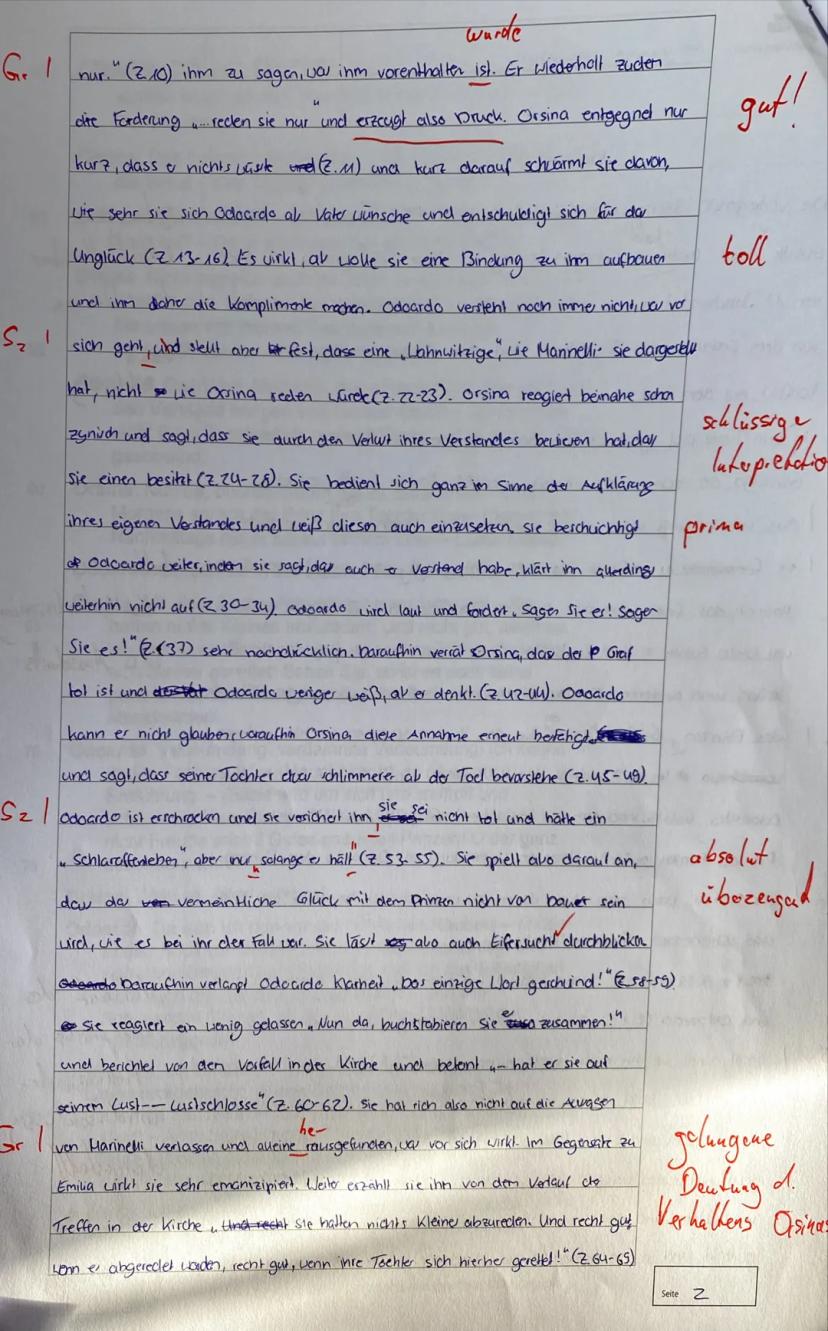 wurde
Gr. | nur." (Z 10) ihm zu sagen, was ihm vorenthalten ist. Er wiederholt zudem
die Forderung „...reden sie nur" und erzeugt also Druck. Orsina entgegnet nur gut!
kurz, dass er nichts wisse (Z. 11) und kurz darauf schwärmt sie davon,
wie sehr sie sich Odoardo als Vater wünsche und entschuldigt sich für das
Unglück (Z 13-16). Es wirkt, als wolle sie eine Bindung zu ihm aufbauen toll
und ihm daher die Komplimente machen. Odoardo versteht noch immer nicht, was vor
Sz | sich geht, und stellt aber fest, dass eine „Wahnwitzige", wie Marinelli sie dargestellt
hat, nicht wie Orsina reden würde (Z. 22-23). Orsina reagiert beinahe schon
schlüssige
zynisch und sagt, dass sie durch den Verlust ihres Verstandes bewiesen hat, das
Interpretation
sie einen besitzt (Z. 24-28). Sie bedient sich ganz im Sinne der Aufklärung
ihres eigenen Verstandes und weiß diesen auch einzusetzen. Sie beschwichtigt prima
Odoardo weiter, indem sie sagt, das auch er Verstand habe, klärt ihn allerdings
weiterhin nicht auf (Z 30-34). Odoardo wird laut und fordert „Sagen Sie es! Sagen
Sie es!" (Z. 37) sehr nachdrücklich. Daraufhin verrät Orsina, das der Graf
tot ist und Odoardo weniger weiß, als er denkt. (Z. 42-44). Odoardo
kann er nicht glauben, woraufhin Orsina diese Annahme erneut bestätigt
und sagt, dass seiner Tochter etwas schlimmeres als der Tod bevorstehe (Z. 45-49).
Sz | Odoardo ist erschrocken und sie versichert ihm sie sei nicht tot und hätte ein
„Schlaraffenleben", aber nur „solange es hält" (Z. 53-55). Sie spielt also darauf an, absolut
dass das vermeintliche Glück mit dem Prinzen nicht von Dauer sein überzeugend
wird, wie es bei ihr der Fall war. Sie lässt also auch Eifersucht durchblicken
Daraufhin verlangt Odoardo Klarheit „Das einzige Wort geschwind!" (Z 58-59)
Sie reagiert ein wenig gelassen „Nun da, buchstabieren Sie es zusammen!"
und berichtet von dem Vorfall in der Kirche und betont „– hat er sie auf
seinem Lust-– Lustschlosse" (Z. 60-62). Sie hat sich also nicht auf die Aussagen
he-
Gr | von Marinelli verlassen und alleine rausgefunden, was vor sich wirkt. Im Gegensatz zu gelungene
Emilia wirkt sie sehr emanizipiert. Weiter erzählt sie ihm von dem Verlauf des Deutung d.
Treffen in der Kirche „Sie hatten nichts Kleines abzureden. Und recht gut Verhaltens Orsinas
wenn es abgeredet worden, recht gut, wenn ihre Tochter sich hierher gerettet!" (Z 64-65)
Seite 2